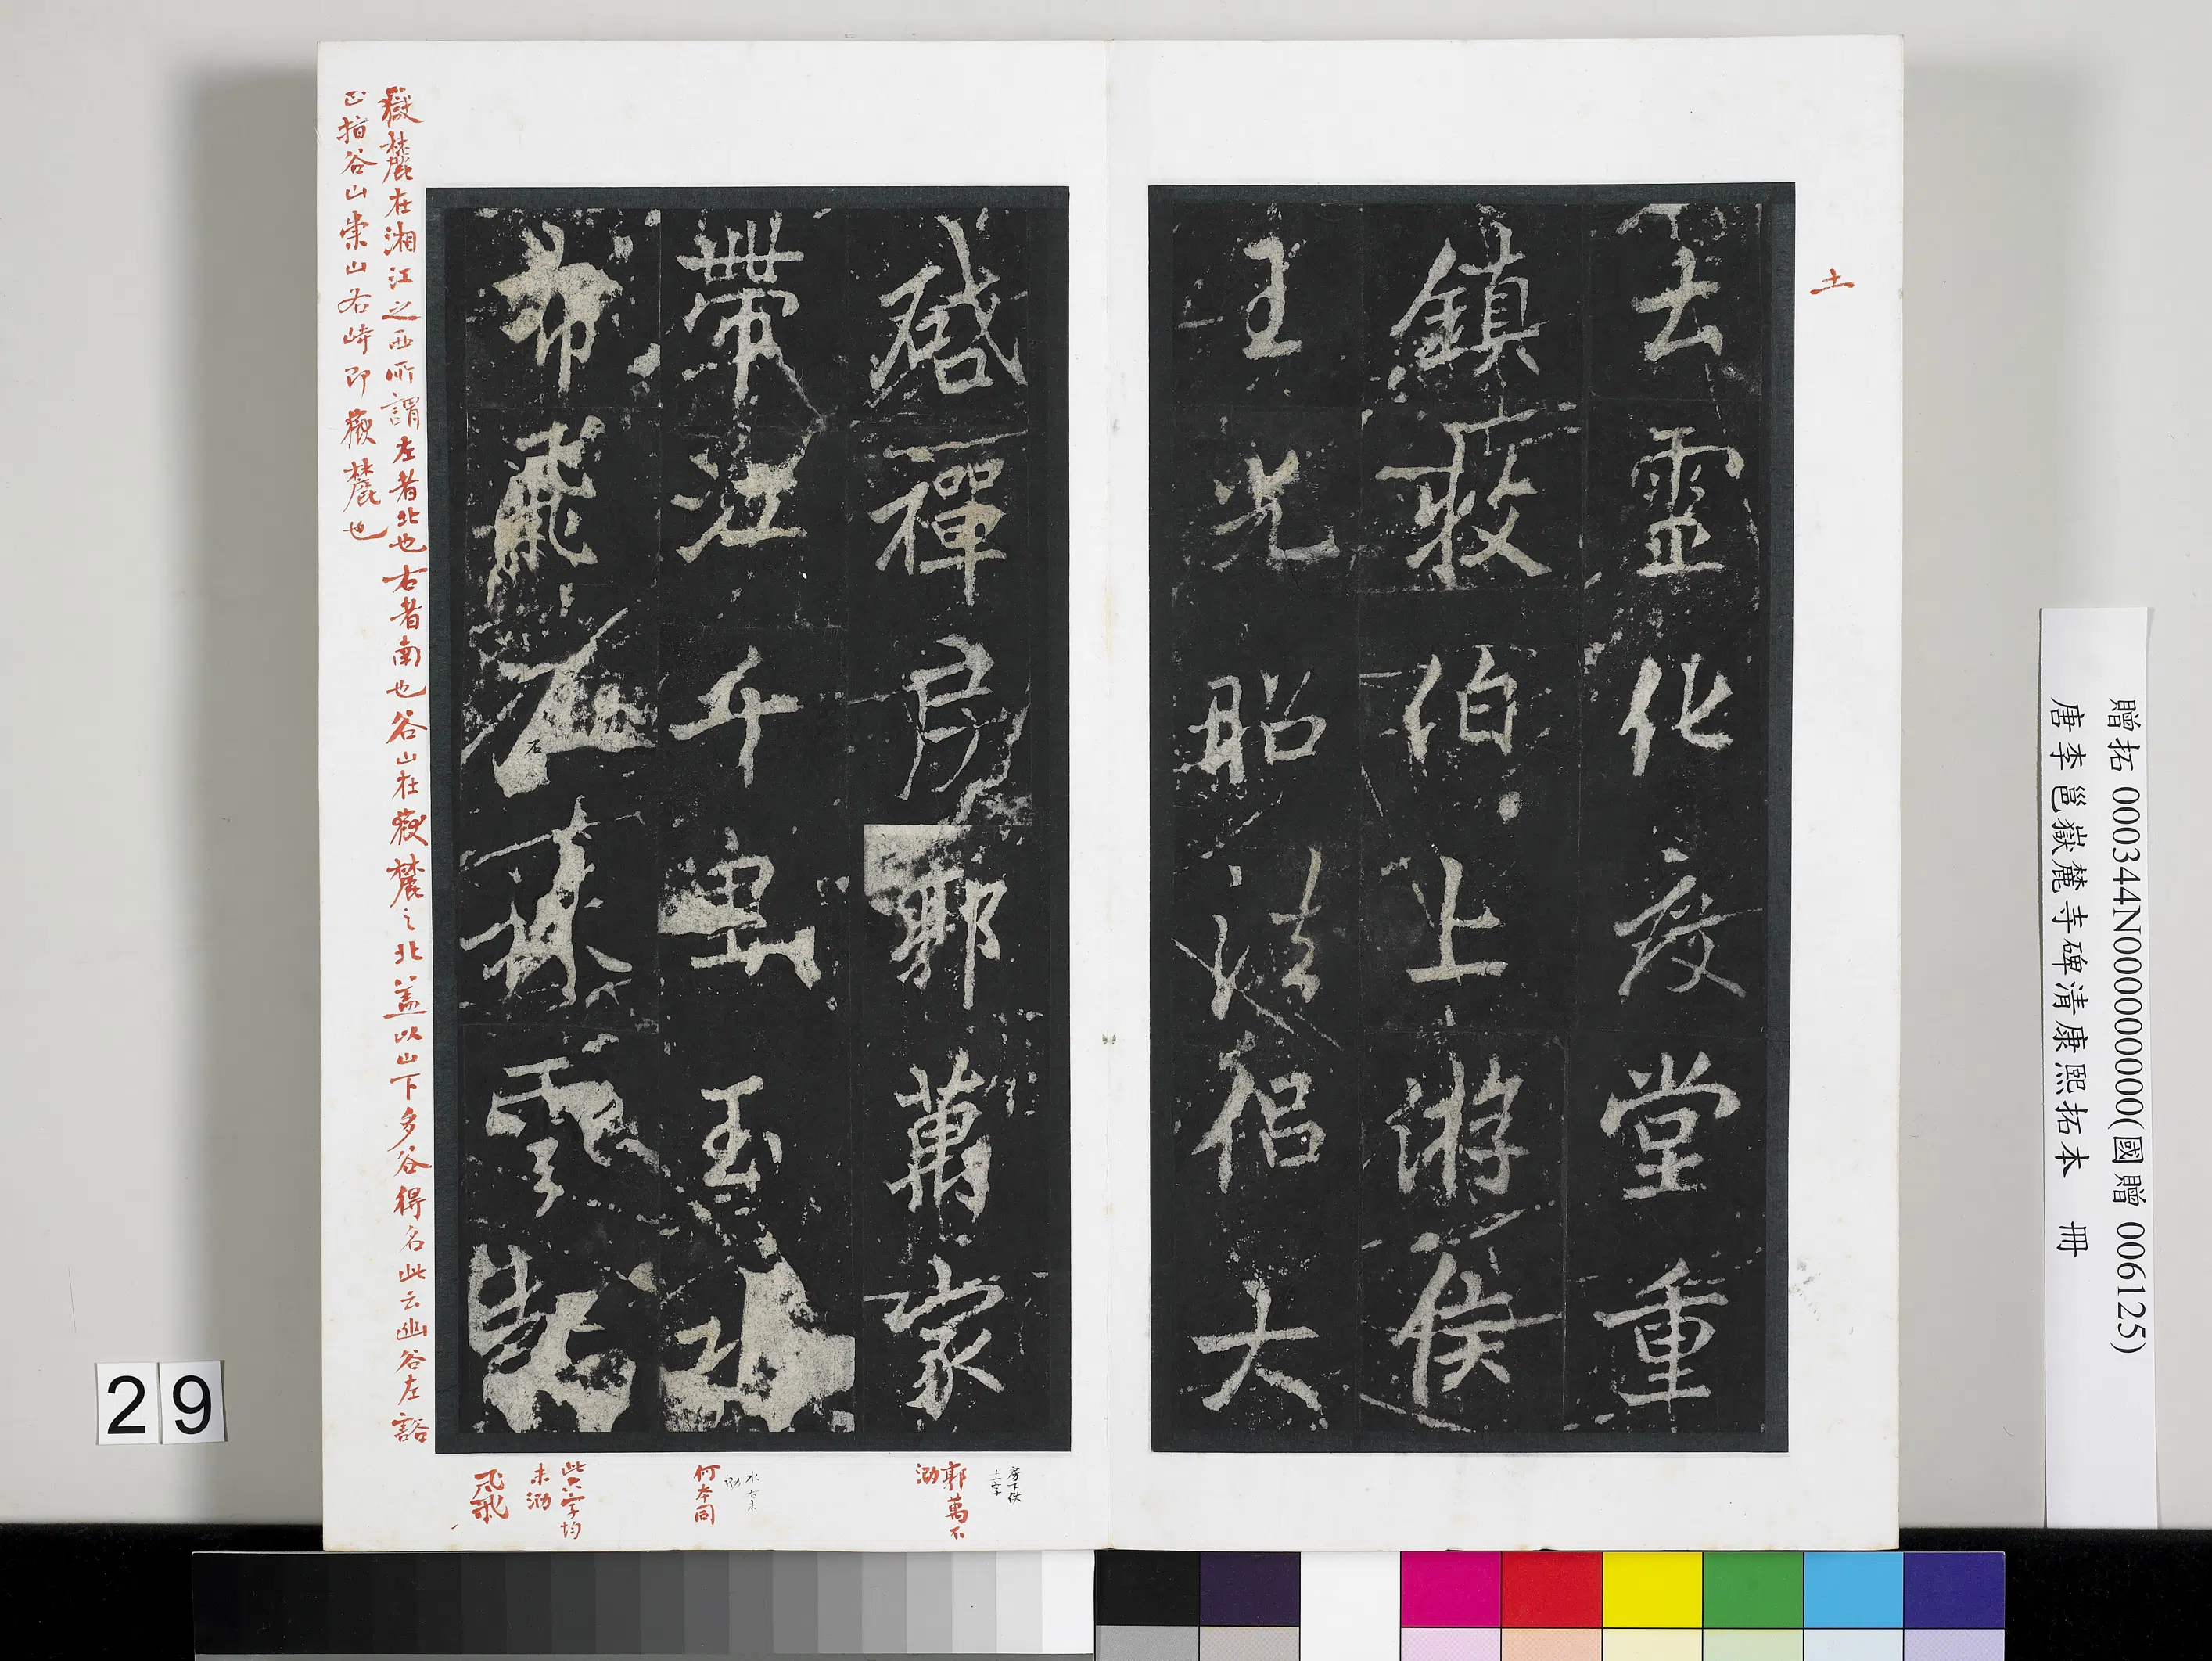 土
去靈化度堂重
鎮敢伯上游侯
王光昭法侶大
啓禪房郭萬家
帶江千玉
布飛石雲
石
嶽麓在湘江之西所謂左者北也右者南也谷山在嶽麓之北蓋以山下多谷得名此云幽谷左豁
正指谷山崇山右峙即嶽麓也
房下佚
土字
郭萬不
泐
水右未
泐
何本同
此六字均
未泐
飛
贈拓 000344N000000000(國贈 006125)
唐李邕嶽麓寺碑清康熙拓本 冊
29